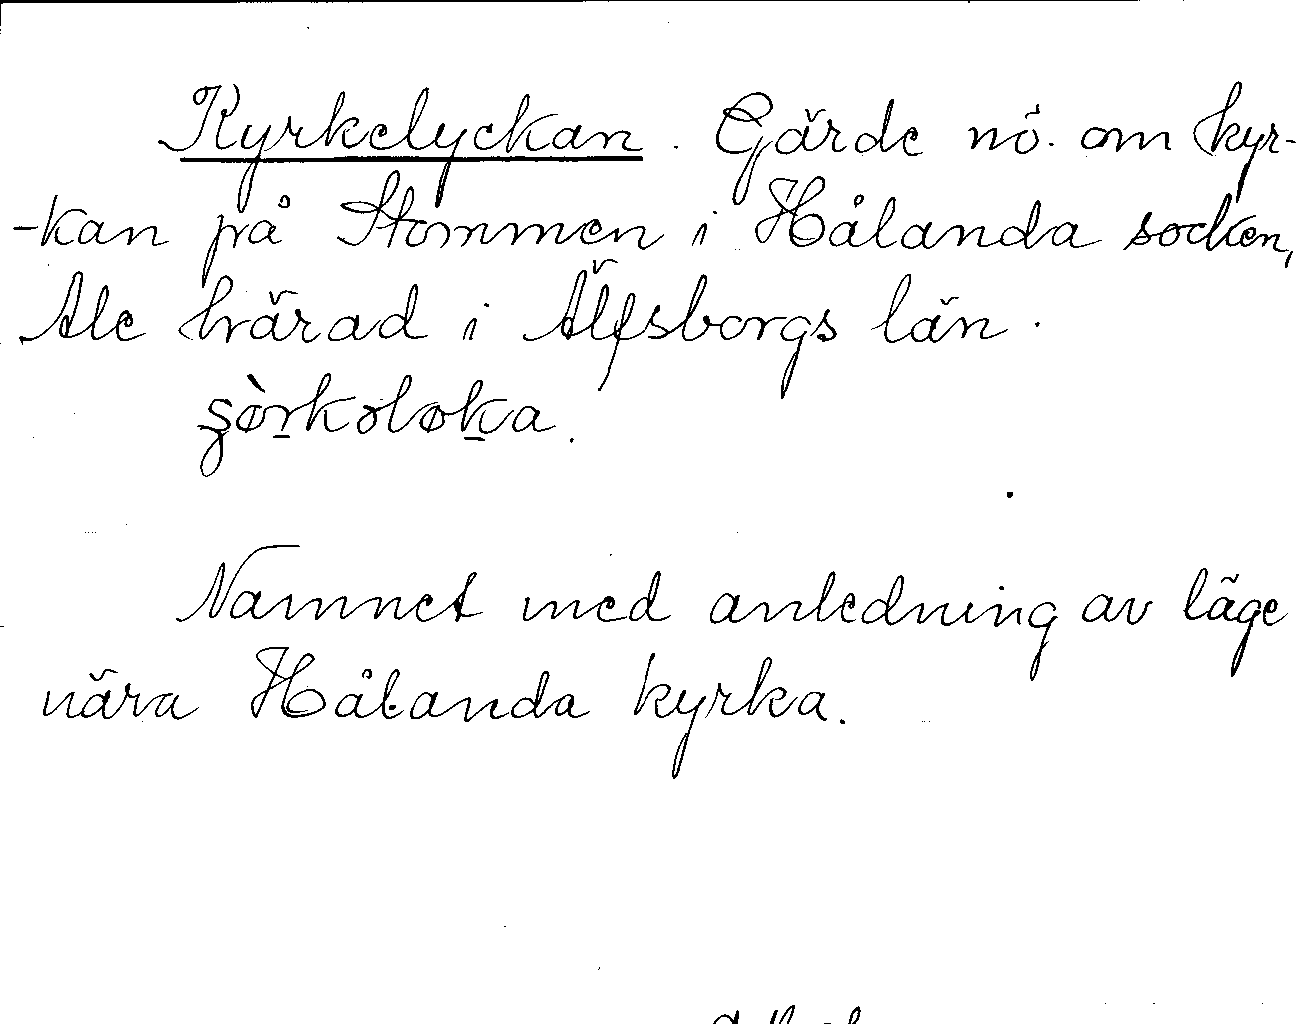 Kyrkelyckan. Gärde nö. om kyr-
-kan på Stommen i Hålanda socken,
Ale härad i Älfsborgs län.
Namnet med anledning av läge
nära Hålanda kyrka.